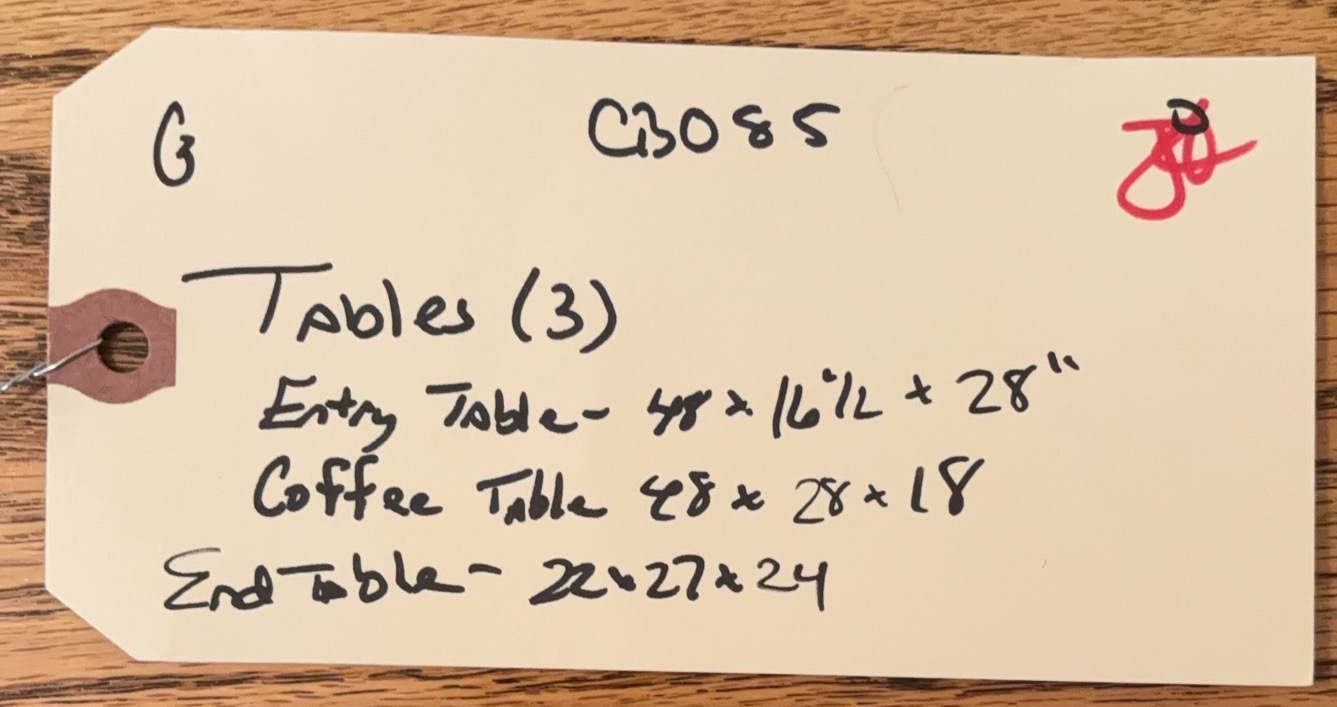 G CB085
Tables (3)
Entry Table - 48 x 16 1/2 x 28"
Coffee Table 48 x 28 x 18
End Table - 22 x 27 x 24